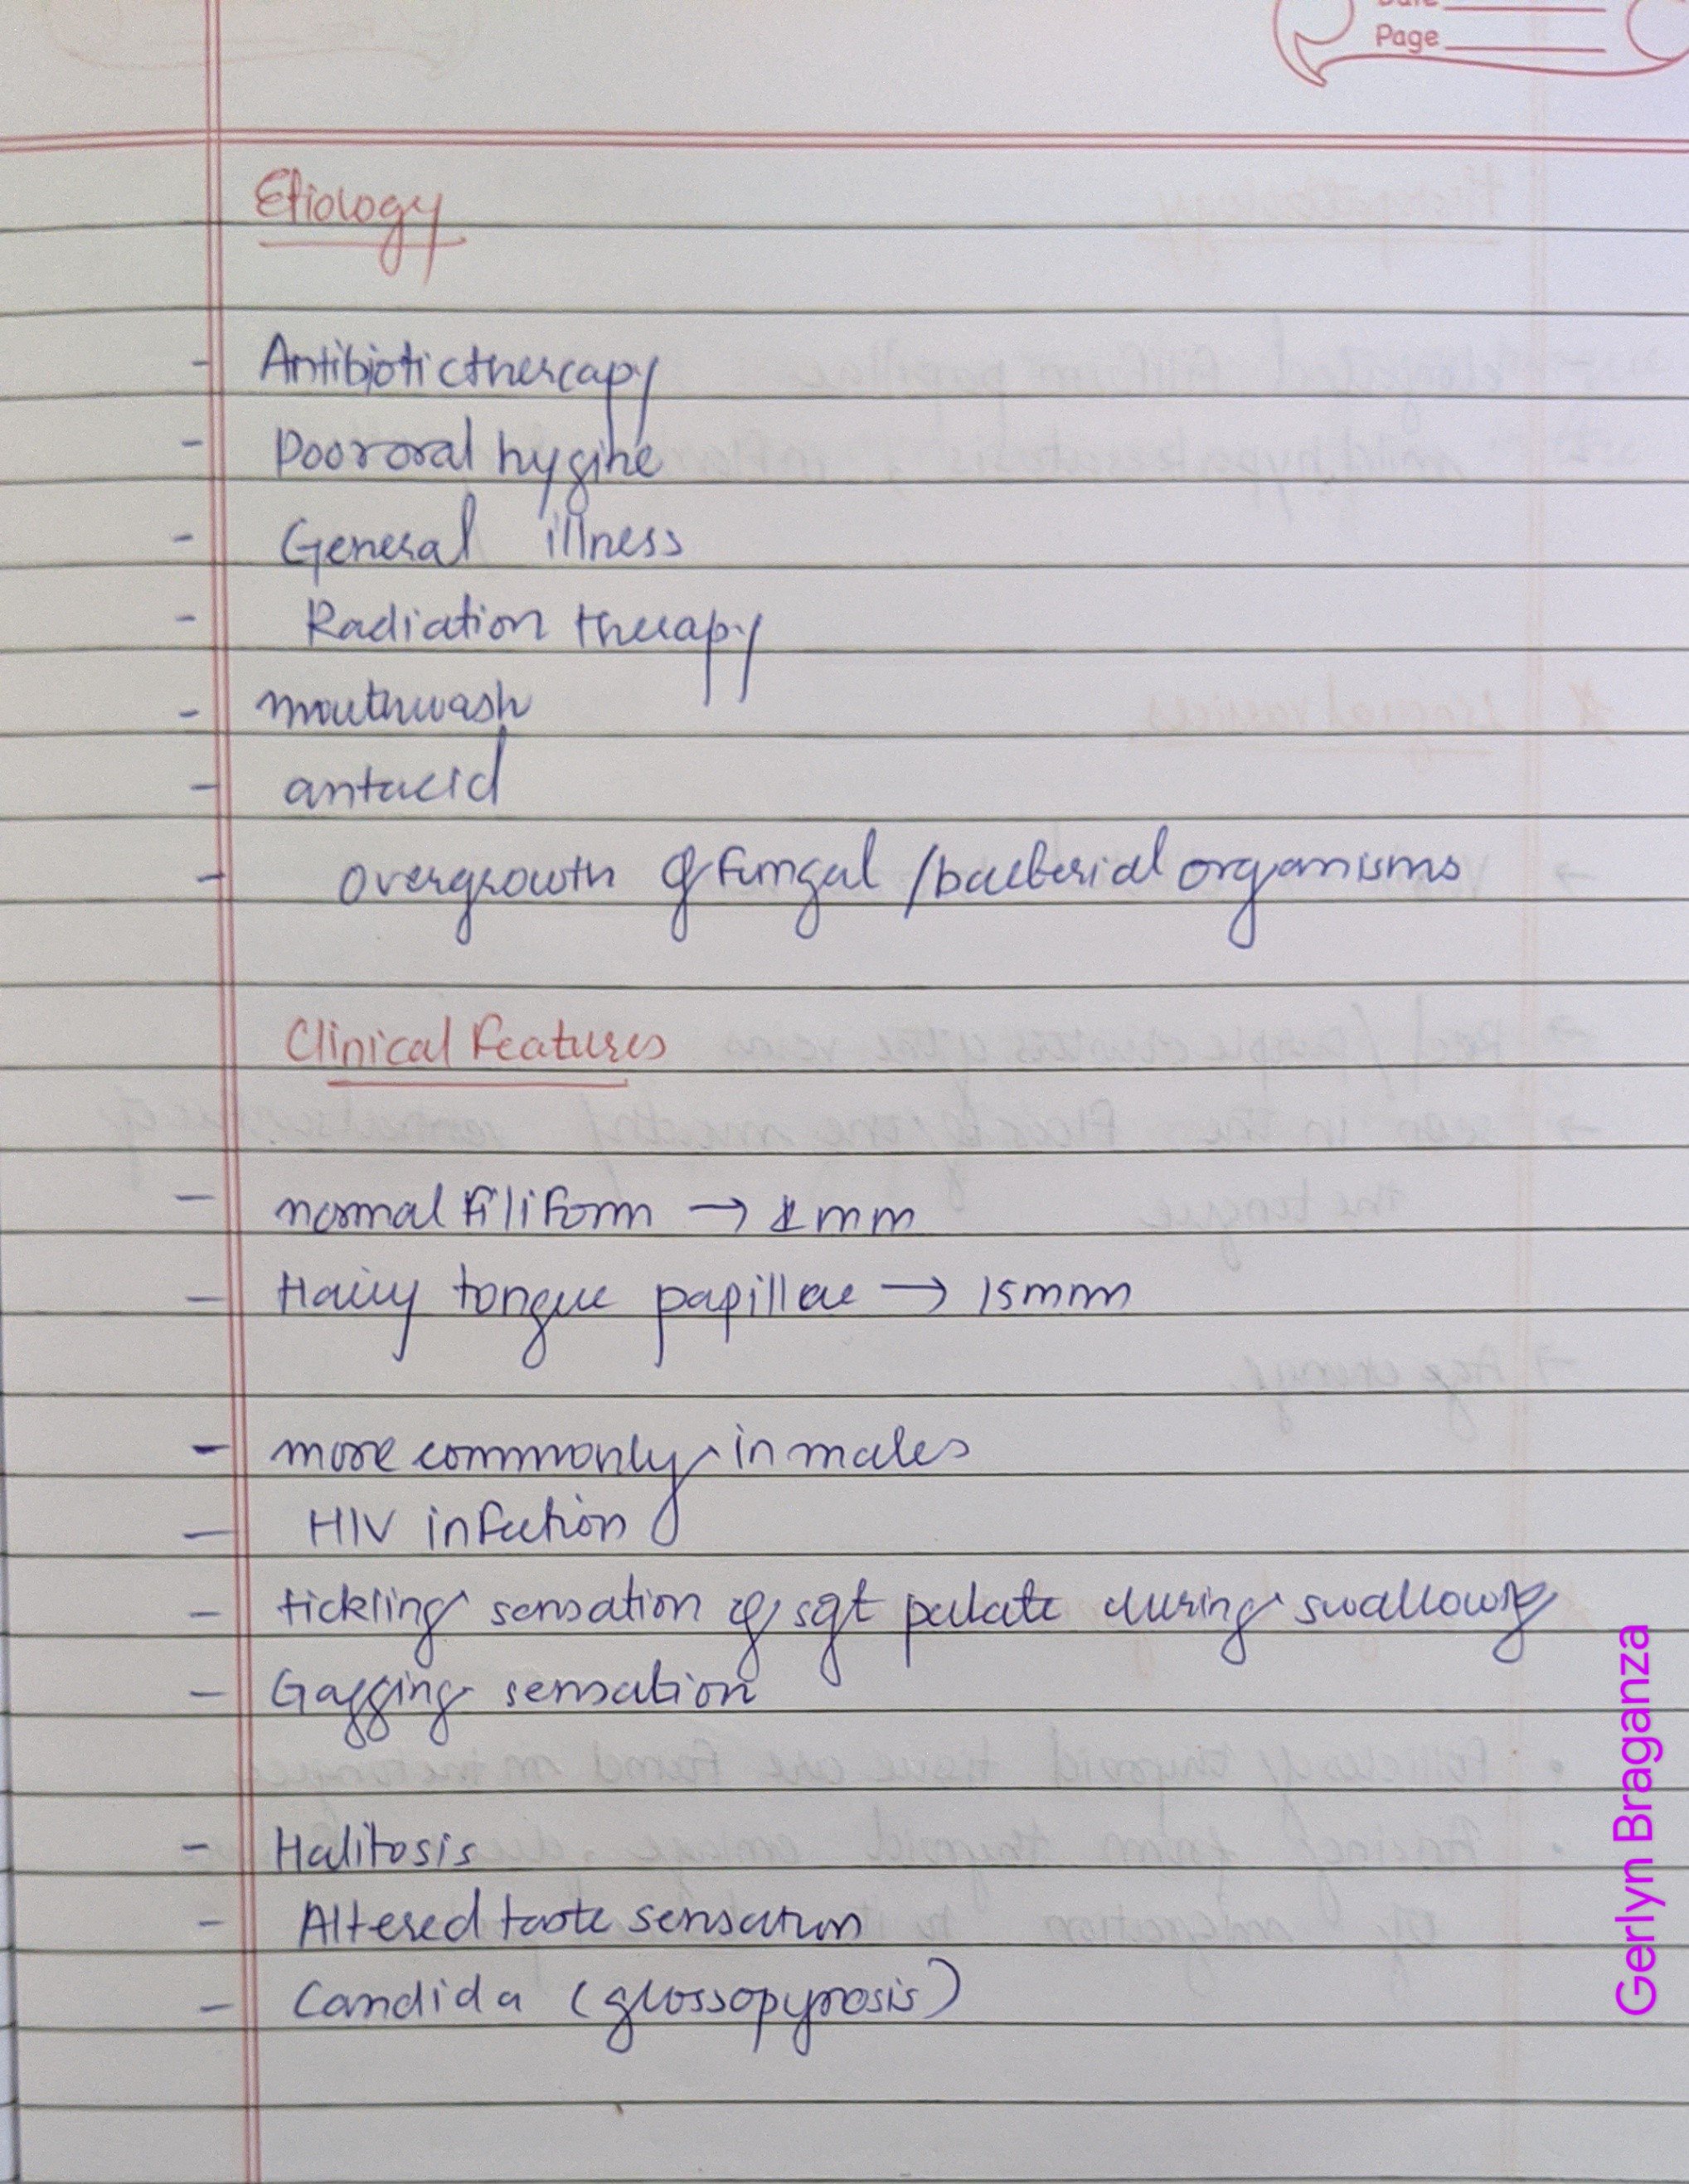 Page
Etiology
- Antibiotic therapy
- Poor oral hygine
- General illness
- Radiation therapy
- mouthwash
- antacid
- overgrowth of fungal / bacterial organisms
Clinical Features
- normal filiform → 1mm
- Hairy tongue papillae → 15mm
- more commonly in males
- HIV infection
- tickling sensation of sqt palate during swallowing
- Gagging sensation
- Halitosis
- Altered taste sensation
- Candida (glossopyrosis)
Gerlyn Braganza